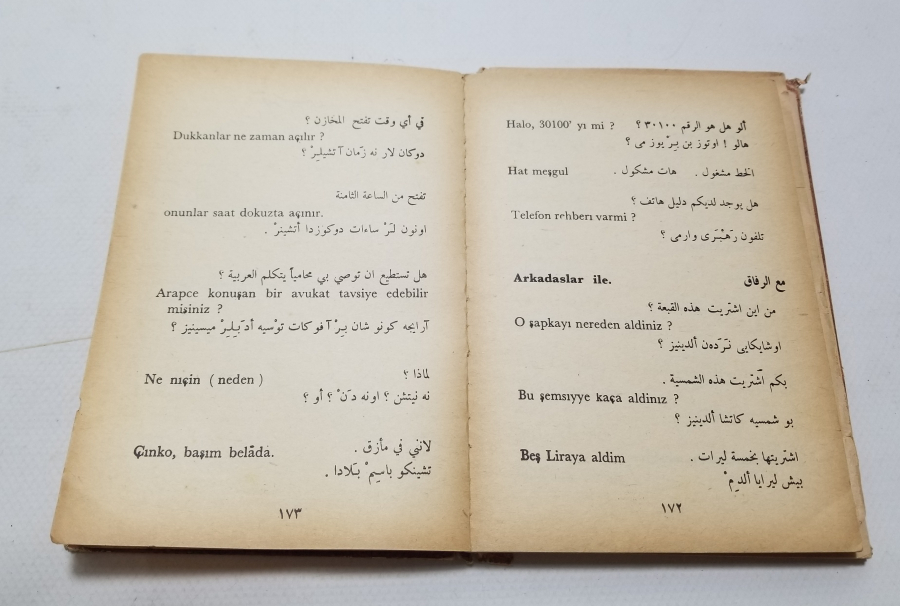 ألو هل هو الرقم ٣٠١٠٠ ؟
Halo, 30100' yı mi ?
هالو ! اوتوز بن بِرْ يوز مى ؟
الخط مشغول . هات مشكول .
Hat meşgul
هل يوجد لديكم دليل هاتف ؟
Telefon rehberı varmi ?
تلفون رَهْبَرى وارمى ؟
مع الرفاق
Arkadaslar ile.
من اين اشتريت هذه القبعة ؟
O şapkayı nereden aldiniz ?
اوشابكايى نَرَدەن ألدينيز ؟
بكم اشتريت هذه الشمسية .
Bu şemsıyye kaça aldinız ?
بو شمسيه كاتشا ألدينيز ؟
اشتريتها بخمسة ليرات .
Beş Liraya aldim
بيش ليرايا ألدِمْ
١٧٢
في أي وقت تفتح المخازن ؟
Dukkanlar ne zaman açılır ?
دوكان لار نه زمان آتشيليرْ ؟
تفتح من الساعة الثامنة
onunlar saat dokuzta açınır.
اونون لَرْ ساءات دوكوزدا أتشينرْ .
هل تستطيع ان توصي بي محامياً يتكلم العربية ؟
Arapce konuşan bir avukat tavsiye edebilir
misiniz ?
آرابجه كونو شان بِرْ آفوكات توْسيه أدَبِلِرْ ميسينيز ؟
لماذا ؟
Ne nıçin ( neden )
نه نيتشن ؟ اونه دَنْ ؟ أو ؟
لانني في مأزق .
Çınko, başım belâda.
تشينكو باسيمْ بَلادا .
١٧٣